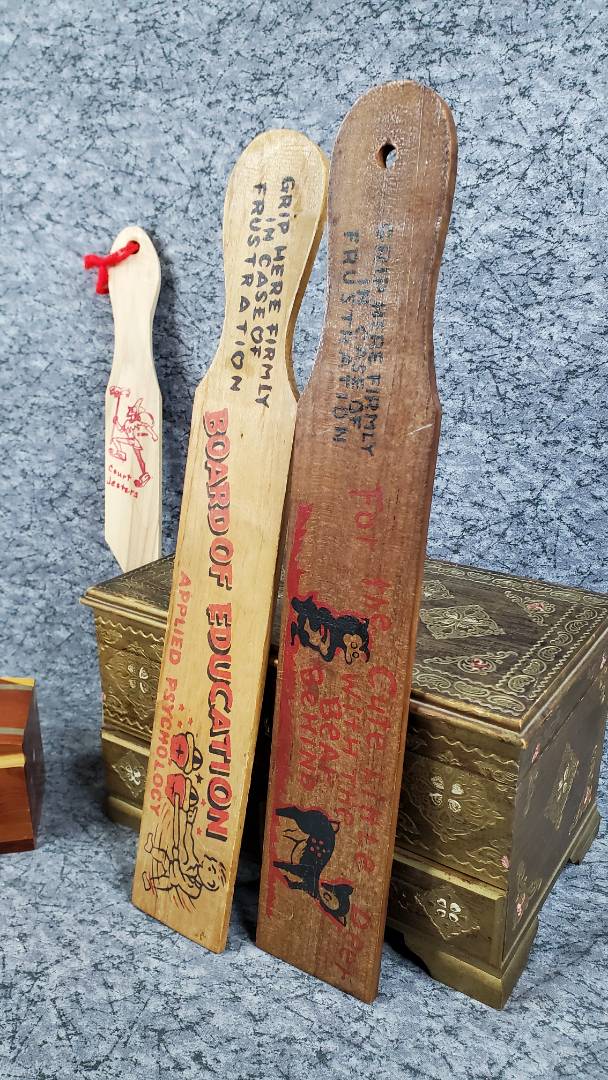 Court
Jesters
GRIP HERE FIRMLY
IN CASE OF
FRUSTRATION
BOARD OF EDUCATION
APPLIED PSYCHOLOGY
GRIP HERE FIRMLY
IN CASE OF
FRUSTRATION
For the Cute little Deer
WITH THE
BEAR
BEHIND